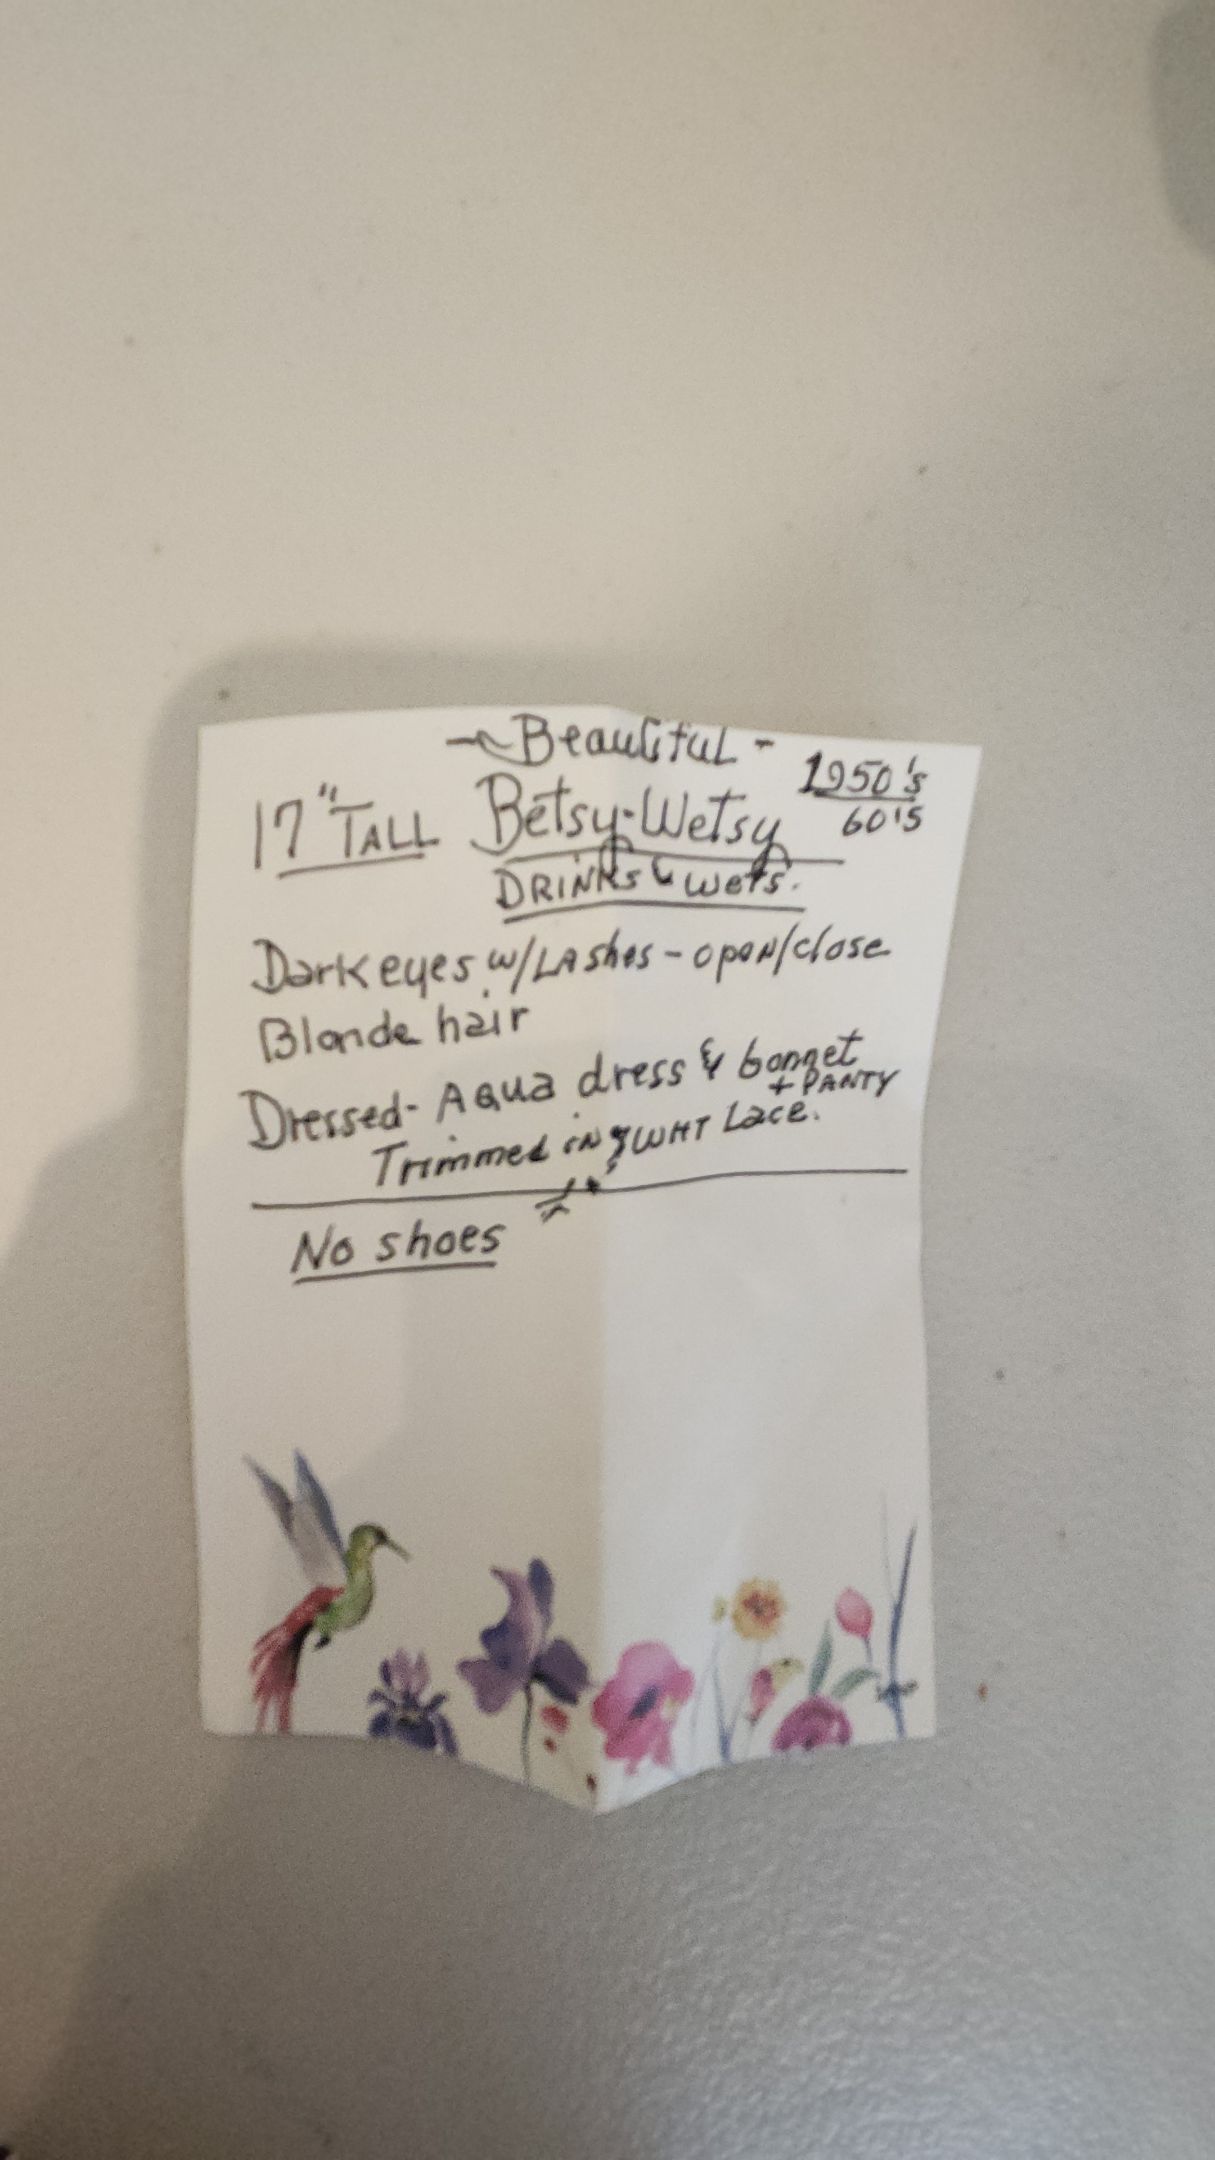 - Beautiful -
17" TALL Betsy-Wetsy 1950's
60's
DRINKS & Wets.
Dark eyes w/Lashes - open/close
Blonde hair
Dressed- Aqua dress & bonnet
+ PANTY
Trimmed in WHT Lace.
No shoes